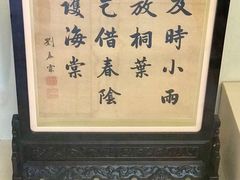 及時小雨
放桐葉
乞借春陰
護海棠
劉春霖